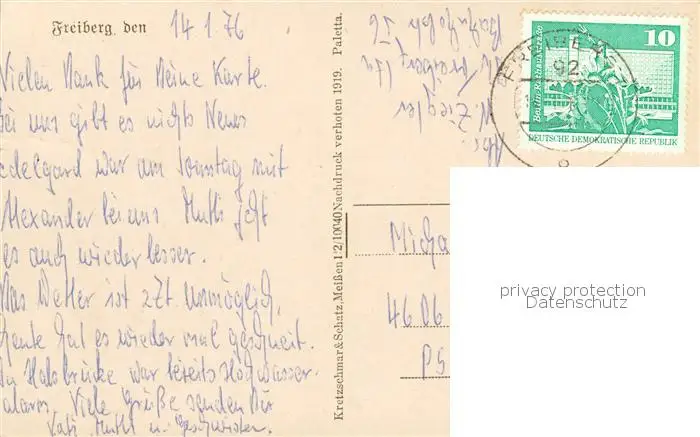 Freiberg, den 14 1 76
Vielen Dank für Deine Karte.
Bei uns gibt es nichts Neues
edelgard war am Sonntag mit
Alexander bei uns Mutti geht
es auch wieder besser.
Das Wetter ist z Zt. unmöglich,
heute hat es wieder mal geschneit.
In Halsbrücke war bereits Hochwasser-
alarm. Viele Grüße senden Dir
Vati Mutti u. Geschwister.
Kretzschmar & Schatz, Meißen 1/2/10040 Nachdruck verboten 1919. Paletta.
Abs
M Ziegler
Freiberg
Bahnhofstr 26
10
Berlin, Rathausstraße
DEUTSCHE DEMOKRATISCHE REPUBLIK
92
Micha
4606
PS
privacy protection
Datenschutz